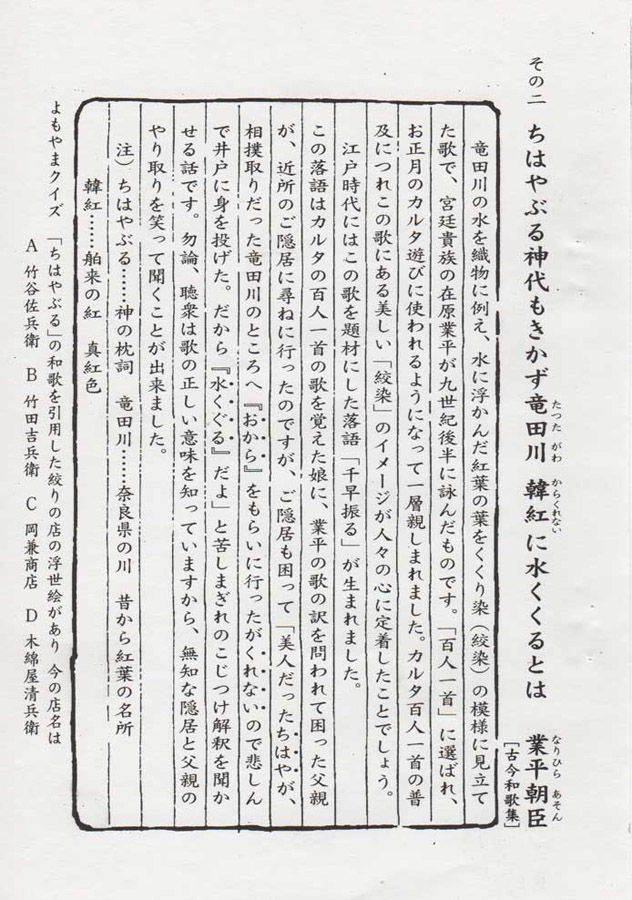 その二 ちはやぶる神代もきかず竜田川 韓紅に水くくるとは 業平朝臣
たつた がわ からくれない なりひら あそん
[古今和歌集]
竜田川の水を織物に例え、水に浮かんだ紅葉の葉をくくり染(絞染)の模様に見立て
た歌で、宮廷貴族の在原業平が九世紀後半に詠んだものです。「百人一首」に選ばれ、
お正月のカルタ遊びに使われるようになって一層親しまれました。カルタ百人一首の普
及につれこの歌にある美しい「絞染」のイメージが人々の心に定着したことでしょう。
江戸時代にはこの歌を題材にした落語「千早振る」が生まれました。
この落語はカルタの百人一首の歌を覚えた娘に、業平の歌の訳を問われて困った父親
が、近所のご隠居に尋ねに行ったのですが、ご隠居も困って「美人だったちはやが、
相撲取りだった竜田川のところへ『おから』をもらいに行ったがくれないので悲しん
で井戸に身を投げた。だから『水くぐる』だよ」と苦しまぎれのこじつけ解釈を聞か
せる話です。勿論、聴衆は歌の正しい意味を知っていますから、無知な隠居と父親の
やり取りを笑って聞くことが出来ました。
注)ちはやぶる……神の枕詞 竜田川……奈良県の川 昔から紅葉の名所
韓紅……舶来の紅 真紅色
よもやまクイズ 「ちはやぶる」の和歌を引用した絞りの店の浮世絵があり 今の店名は
A 竹谷佐兵衛 B 竹田吉兵衛 C 岡兼商店 D 木綿屋清兵衛